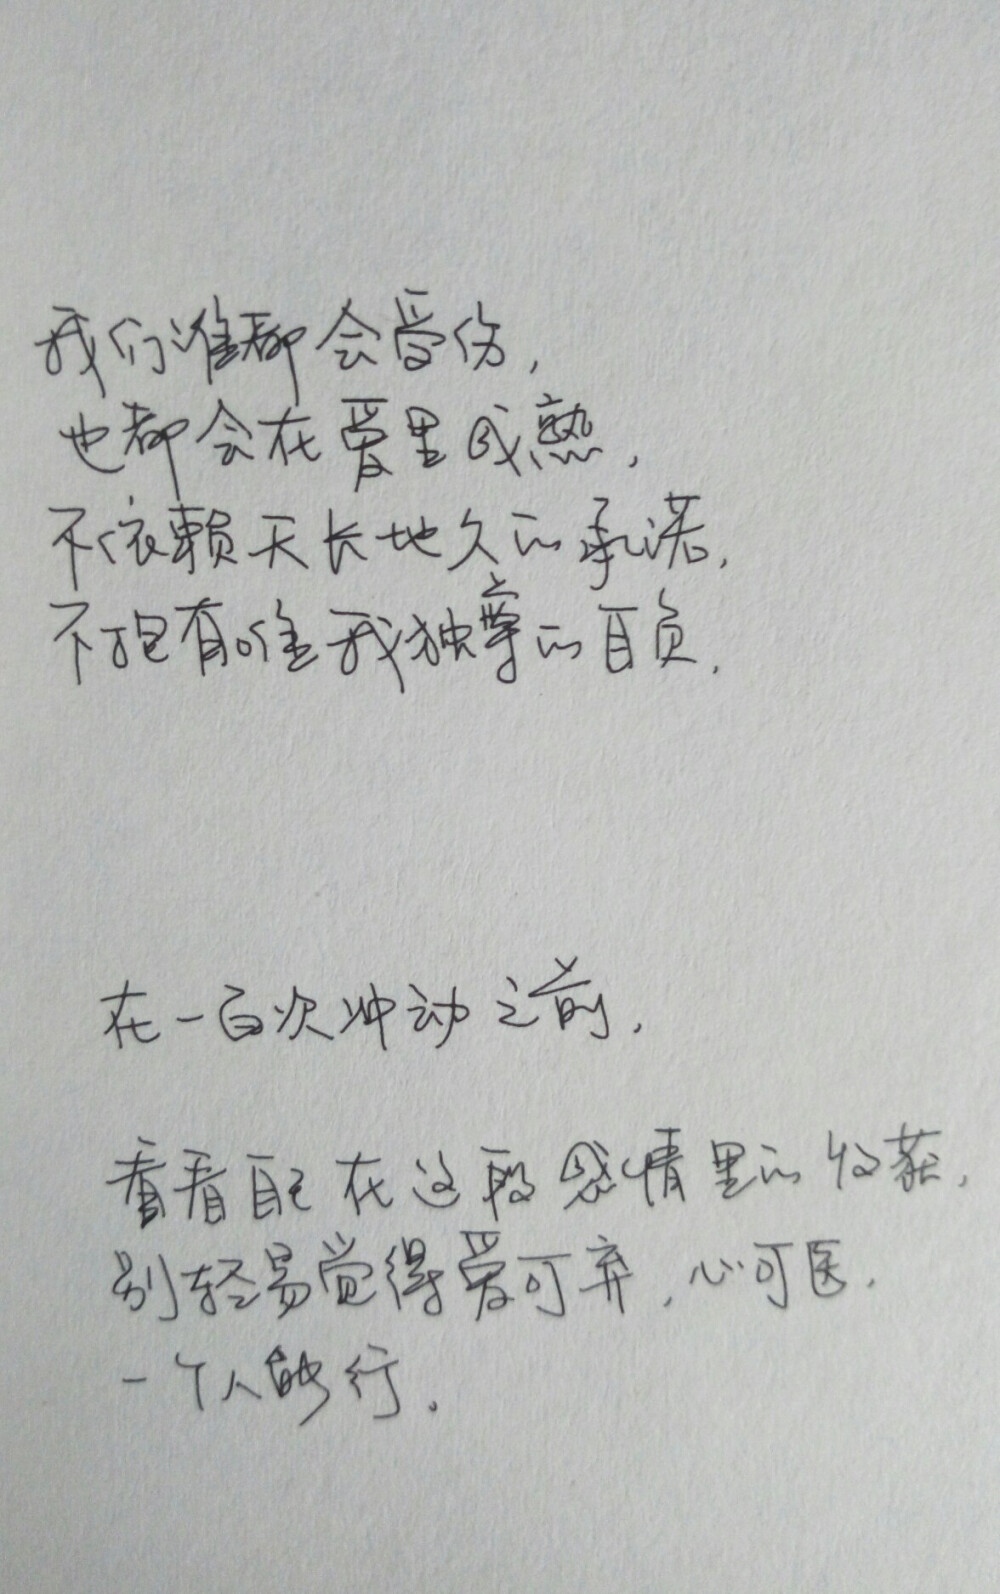 我们谁都会受伤，
也都会在爱里成熟，
不依赖天长地久的承诺，
不抱有唯我独尊的自负，
在一百次冲动之前，
看看自己在这段感情里的收获，
别轻易觉得爱可弃，心可医，
一个人能行．